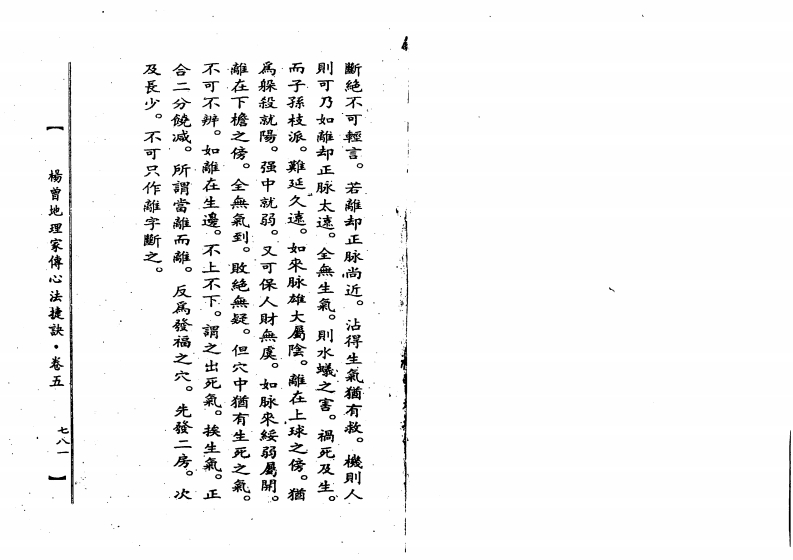 斷絕不可輕言。若離却正脉尚近。沾得生氣猶有救。機則人
則可乃如離却正脉太遠。全無生氣。則水蟻之害。禍死及生。
而子孫枝派。難延久遠。如來脉雄大屬陰。離在上球之傍。猶
為躲殺就陽。强中就弱。又可保人財無虞。如脉來綏弱屬開。
離在下檐之傍。全無氣到。敗絕無疑。但穴中猶有生死之氣。
不可不辨。如離在生邊。不上不下。謂之出死氣。挨生氣。正
合二分饒減。所謂當離而離。反為發福之穴。先發二房。次
及長少。不可只作離字斷之。
【 楊曾地理家傳心法捷訣・卷五 七八一 】